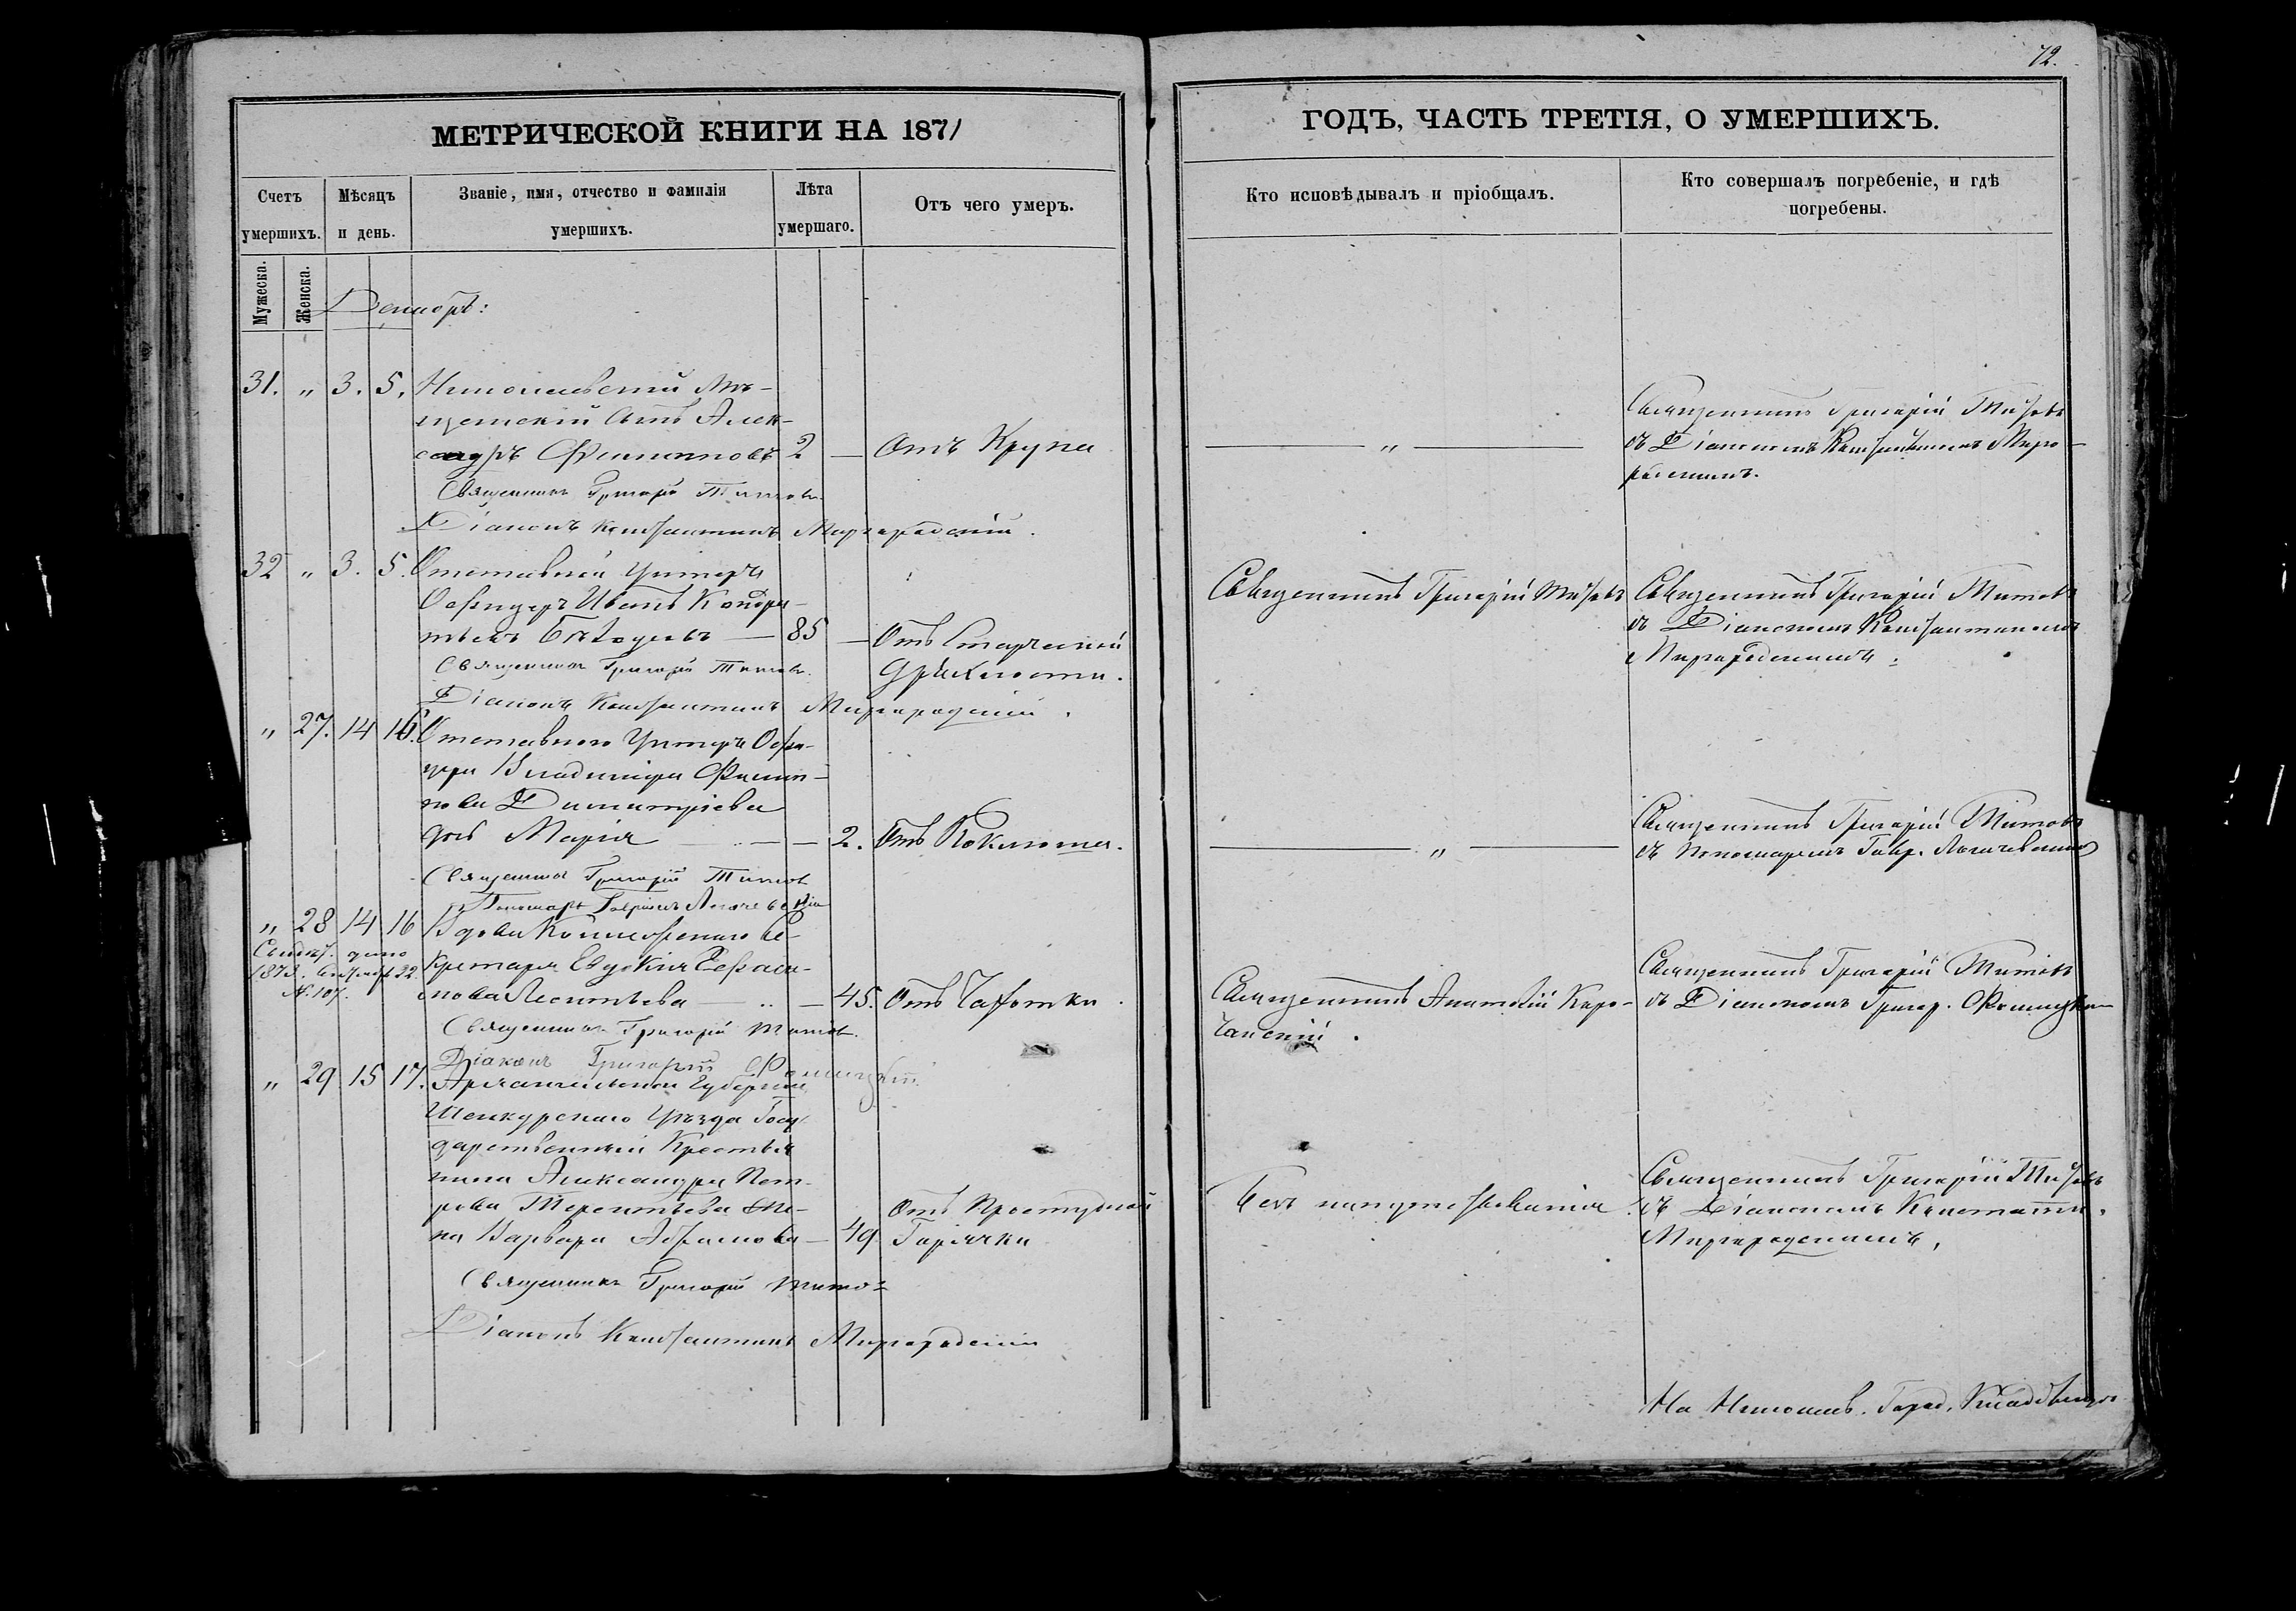 МЕТРИЧЕСКОЙ КНИГИ НА 1871
Счетъ умершихъ.
Мѣсяцъ и день.
Званіе, имя, отчество и фамилія умершихъ.
Лѣта умершаго.
Отъ чего умеръ.
Мужеска.
Женска.
Декабрь:
31. „ 3. 5. Николаевскій Мѣ-
щанскій сынъ Алек-
сандръ Филипповъ 2 — Отъ Крупа
Священникъ Григорій Титовъ
Діаконъ Константинъ Миргородскій.
32 „ 3. 5. Отставной Унтеръ
Офицеръ Иванъ Кондра-
тьевъ — 85 — Отъ Старческой
дряхлости.
Священникъ Григорій Титовъ.
Діаконъ Константинъ Миргородскій.
„ 27. 14 16. Отставного Унтеръ Офи-
цера Владиміра Филип-
пова Димитріева
дочь Марія — 2. Отъ Коклюша.
Священникъ Григорій Титовъ
Пономарь Гавріилъ
„ 28 14 16 Вдова Коллежскаго Се-
кретаря Евдокія
Леонтьева — 45. Отъ Чахотки.
№ 107.
Священникъ Григорій Титовъ.
Діаконъ Григорій
„ 29 15 17. Архангельской Губерніи
Шенкурскаго Уѣзда Госу-
дарственный Крестья-
нина Александра Пет-
рова Терентьева же-
на Варвара Абрамова — 49 Отъ Простудной
Горячки
Священникъ Григорій Титовъ
Діаконъ Константинъ Миргородскій
72.
ГОДЪ, ЧАСТЬ ТРЕТІЯ, О УМЕРШИХЪ.
Кто исповѣдывалъ и пріобщалъ.
Кто совершалъ погребеніе, и гдѣ
погребены.
— „ —
Священникъ Григорій Титовъ
съ Діакономъ Константиномъ Мирго-
родскимъ.
Священникъ Григорій Титовъ
Священникъ Григорій Титовъ
съ Діакономъ Константиномъ
Миргородскимъ.
— „ —
Священникъ Григорій Титовъ
съ Пономаремъ Гавр.
Священникъ Анатолій Каро-
чанскій.
Священникъ Григорій Титовъ
съ Діакономъ Григор.
Безъ напутствованія.
Священникъ Григорій Титовъ
съ Діакономъ Констант.
Миргородскимъ,
На Николаев. Город. Кладбищѣ